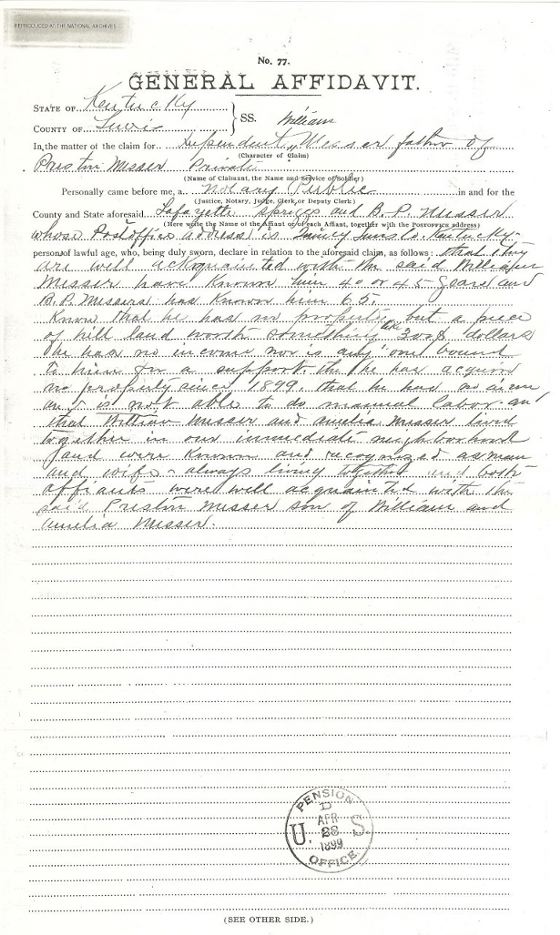 REPRODUCED AT THE NATIONAL ARCHIVES
No. 77.
GENERAL AFFIDAVIT.
STATE OF Kentucky
COUNTY OF Lewis } SS. William
In the matter of the claim for Dependent, Messer father of
(Character of Claim)
Preston Messer Private
(Name of Claimant, the Name and Service of Soldier)
Personally came before me, a Notary Public in and for the
(Justice, Notary, Judge, Clerk, or Deputy Clerk)
County and State aforesaid Lafayette Spriggs and B. P. Messer
(Here write the Name of the Affiant or of each Affiant, together with the Postoffice address)
whose Postoffice address is Kentucky
person of lawful age, who, being duly sworn, declare in relation to the aforesaid claim, as follows: that they
are well acquainted with the said William
Messer have known him 40 or 45 years and
B. P. Messers has known him 65.
Know that he has no property but a piece
of hill land worth something like dollars
he has no income nor is any one bound
to him for a support. the he has acquired
no property since 1899. that he had no income
and is not able to do manual labor and
that William Messer and Amelia Messer lived
together in our immediate neighborhood
and were known and recognized as man
and wife - always living together and both
affiants were well acquainted with the
said Preston Messer son of William and
Amelia Messer.
PENSION
D
APR
U. 28 S.
1899
OFFICE
(SEE OTHER SIDE.)